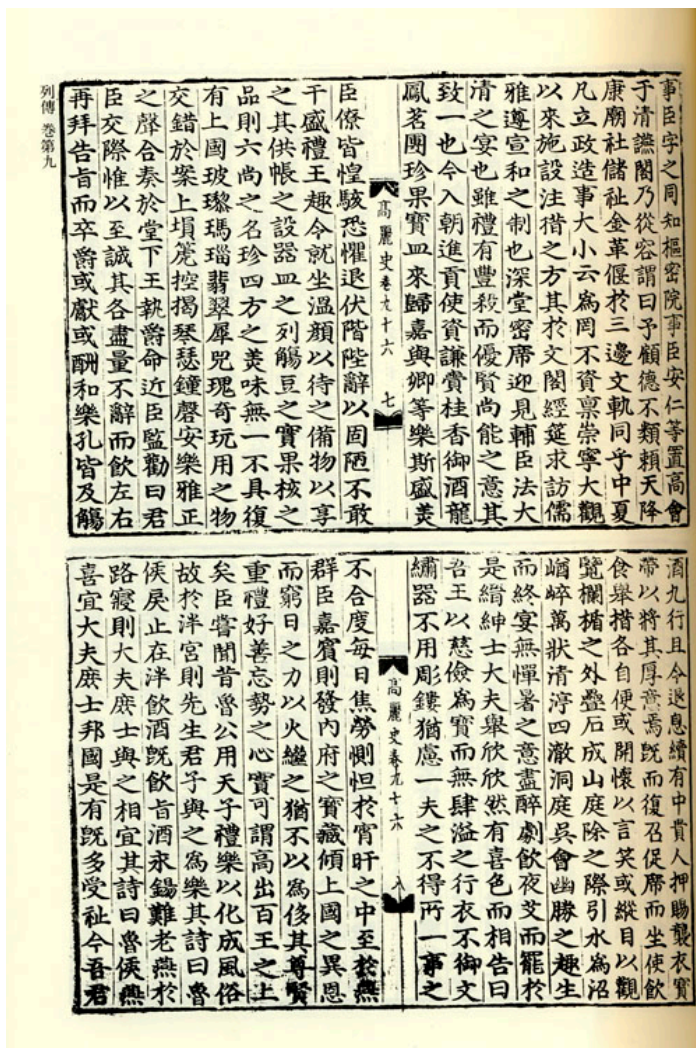 列傳 卷第九
事臣字之同知樞密院事臣安仁等置高會
于清讌閣乃從容謂曰予顧德不類賴天降
康廟社儲祉金革偃於三邊文軌同乎中夏
凡立政造事大小云爲罔不資稟崇寧大觀
以來施設注措之方其於文閣經筵求訪儒
雅遵宣和之制也深堂密席迎見輔臣法大
清之宴也雖禮有豐殺而優賢尚能之意其
致一也今入朝進貢使資謙賫桂香御酒龍
鳳茗團珍果寶皿來歸嘉與卿等樂斯盛羙
高麗史卷九十六 七
臣僚皆惶駭恐懼退伏階陛辭以固陋不敢
干盛禮王趣令就坐溫顔以待之備物以享
之其供帳之設器皿之列觴豆之實果核之
品則六尚之名珍四方之羙味無一不具復
有上國玻瓈瑪瑙翡翠犀兕瑰奇玩用之物
交錯於案上塤篪控揭琴瑟鐘磬安樂雅正
之聲合奏於堂下王執爵命近臣監勸曰君
臣交際惟以至誠其各盡量不辭而飮左右
再拜告旨而卒爵或獻或酬和樂孔皆及觴
酒九行且令退息續有中貴人押賜襲衣寶
帶以將其厚意焉旣而復召促席而坐使飮
食舉措各自便或開懷以言笑或縱目以觀
覽欄楯之外疊石成山庭除之際引水爲沼
崷崒萬狀清渟四澈洞庭吳會幽勝之趣生
而終宴無憚暑之意盡醉劇飮夜艾而罷於
是縉紳士大夫舉欣欣然有喜色而相告曰
吾王以慈儉爲寶而無肆溢之行衣不御文
繡器不用彫鏤猶慮一夫之不得所一事之
高麗史卷九十六 八
不合度每日焦勞惻怛於宵旰之中至於燕
群臣嘉賓則發內府之寶藏傾上國之異恩
而窮日之力以火繼之猶不以爲侈其尊賢
重禮好善忘勢之心實可謂高出百王之上
矣臣嘗聞昔魯公用天子禮樂以化成風俗
故於泮宮則先生君子與之爲樂其詩曰魯
侯戾止在泮飮酒旣飮旨酒永錫難老燕於
路寢則大夫庶士與之相宜其詩曰魯侯燕
喜宜大夫庶士邦國是有旣多受祉今吾君